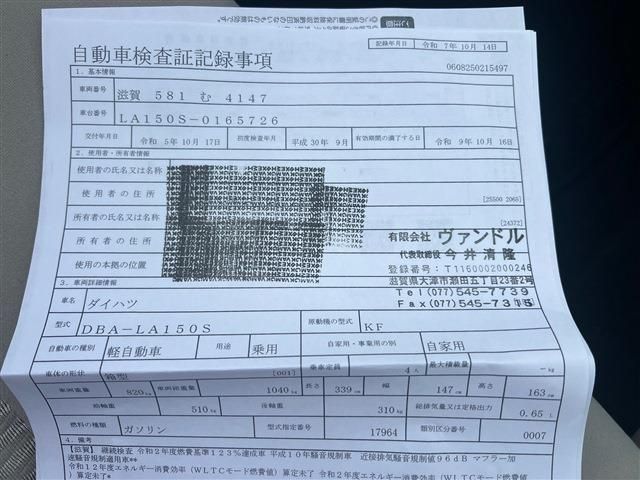 記録年月日 令和 7年10月14日
自動車検査証記録事項
0608250215497
1. 基本情報
車両番号 滋賀 581 む 4147
車台番号 LA150S-0165726
交付年月日 令和 5年10月17日 初度検査年月 平成30年 9月 有効期間の満了する日 令和 9年10月16日
2. 使用者・所有者情報
使用者の氏名又は名称
使用者の住所 [25500 2065]
所有者の氏名又は名称 [24372]
所有者の住所
使用の本拠の位置
有限会社 ヴァンドル
代表取締役 今井清隆
登録番号:T1160002000246
滋賀県大津市瀬田五丁目23番2号
Tel(077)545-7739
Fax(077)545-7315
3. 車両詳細情報
車名 ダイハツ
型式 DBA-LA150S 原動機の型式 KF
自動車の種別 軽自動車 用途 乗用 自家用・事業用の別 自家用
車体の形状 箱型 [001] 乗車定員 4人 最大積載量 -kg
車両重量 820kg 車両総重量 1040kg 長さ 339cm 幅 147cm 高さ 163cm
前軸重 510kg 後軸重 310kg 総排気量又は定格出力 0.65 L
燃料の種類 ガソリン 型式指定番号 17964 類別区分番号 0007
4. 備考
[滋賀] 継続検査 令和2年度燃費基準123%達成車 平成10年騒音規制車 近接排気騒音規制値96dB マフラー加
速騒音規制適用車**
令和12年度エネルギー消費効率(WLTCモード燃費値)算定未了 令和2年度エネルギー消費効率(WLTCモード燃費
値)算定未了*